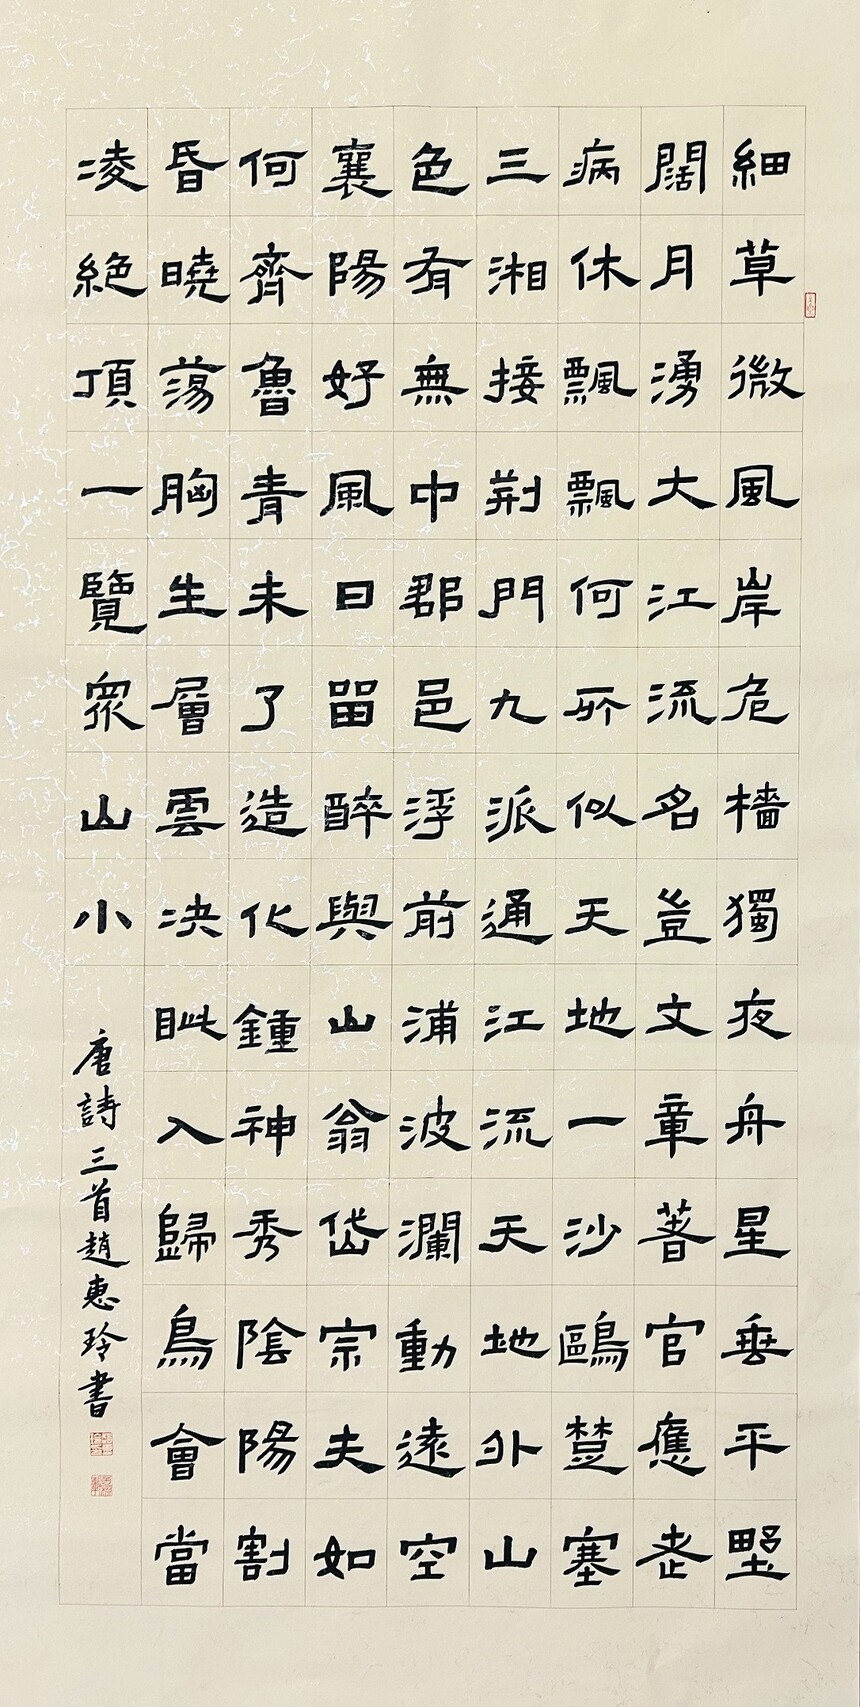 細草微風岸危檣獨夜舟星垂平野
闊月湧大江流名豈文章著官應老
病休飄飄何所似天地一沙鷗楚塞
三湘接荆門九派通江流天地外山
色有無中郡邑浮前浦波瀾動遠空
襄陽好風日留醉與山翁岱宗夫如
何齊魯青未了造化鍾神秀陰陽割
昏曉蕩胸生層雲決眦入歸鳥會當
凌絶頂一覽眾山小
唐詩三首趙惠玲書